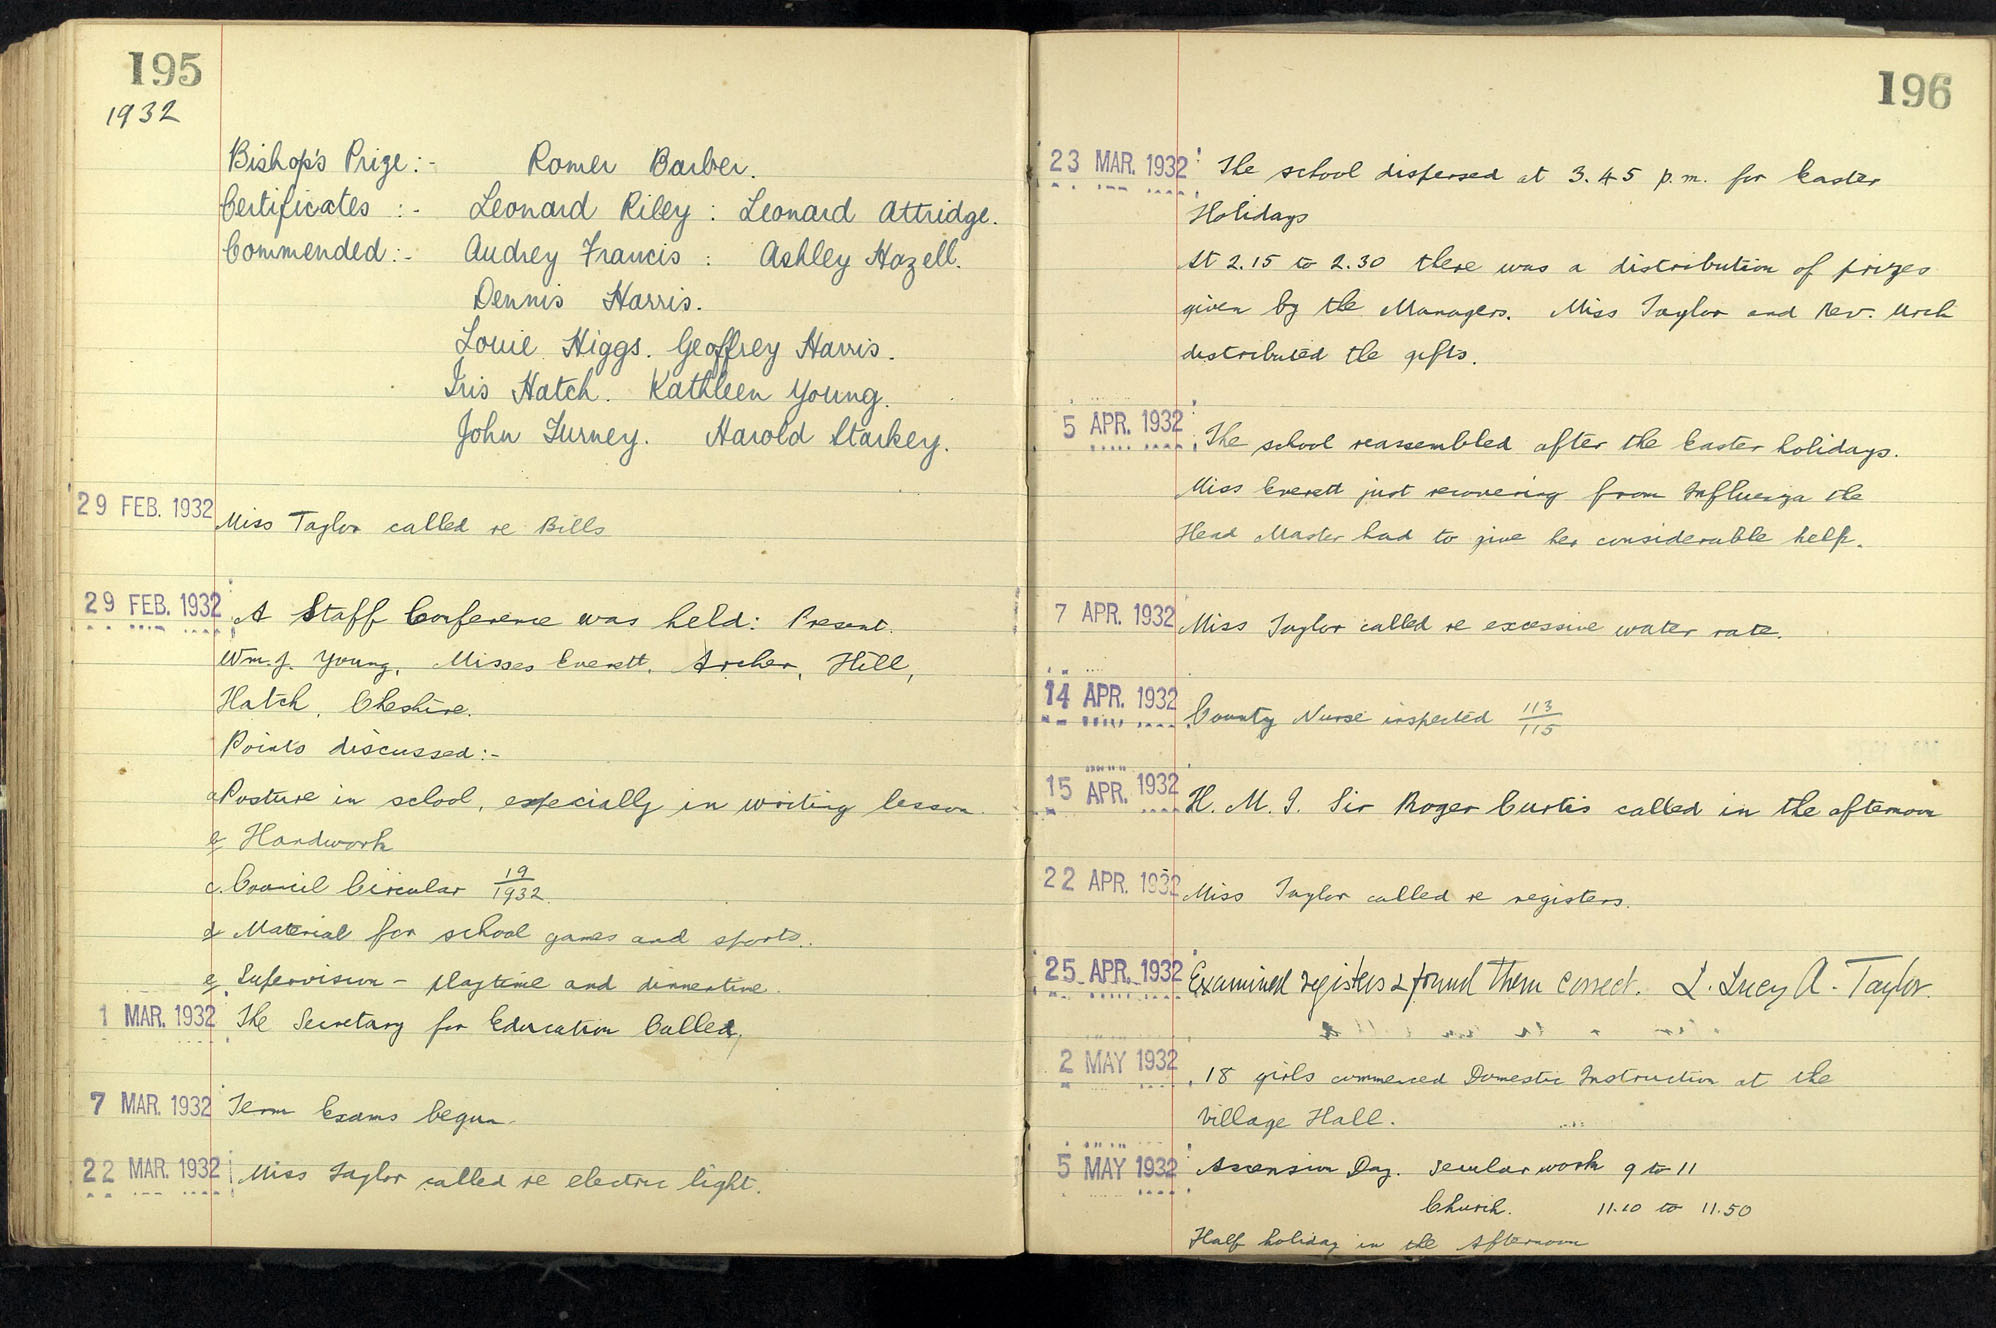 195
1932
Bishop's Prize :- Romer Barber.
Certificates :- Leonard Riley : Leonard Attridge.
Commended :- Audrey Francis : Ashley Hazell.
Dennis Harris.
Louie Higgs. Geoffrey Harris.
Iris Hatch. Kathleen Young.
John Turney. Harold Starkey.
29 FEB. 1932 Miss Taylor called re Bills
29 FEB. 1932 A Staff Conference was held: Present.
Wm. J. Young, Misses Everett, Archer, Hill,
Hatch, Cheshire.
Points discussed:-
a Posture in school, especially in writing lesson.
b Handwork
c. Council Circular 19/1932.
d Material for school games and sports.
e Supervision - playtime and dinnertime.
1 MAR. 1932 The Secretary for Education Called.
7 MAR. 1932 Term Exams begun.
22 MAR. 1932 Miss Taylor called re electric light.
196
23 MAR. 1932 The school dispersed at 3.45 p.m. for Easter
Holidays
At 2.15 to 2.30 there was a distribution of prizes
given by the Managers. Miss Taylor and Rev. Urch
distributed the gifts.
5 APR. 1932 The school reassembled after the Easter holidays.
Miss Everett just recovering from Influenza the
Head Master had to give her considerable help.
7 APR. 1932 Miss Taylor called re excessive water rate.
14 APR. 1932 County Nurse inspected 113/115
15 APR. 1932 H. M. I. Sir Roger Curtis called in the afternoon
22 APR. 1932 Miss Taylor called re registers.
25 APR. 1932 Examined registers & found them correct. L. Lucy A. Taylor.
2 MAY 1932 18 girls commenced Domestic Instruction at the
Village Hall.
5 MAY 1932 Ascension Day. Secular work 9 to 11
Church. 11.10 to 11.50
Half holiday in the Afternoon